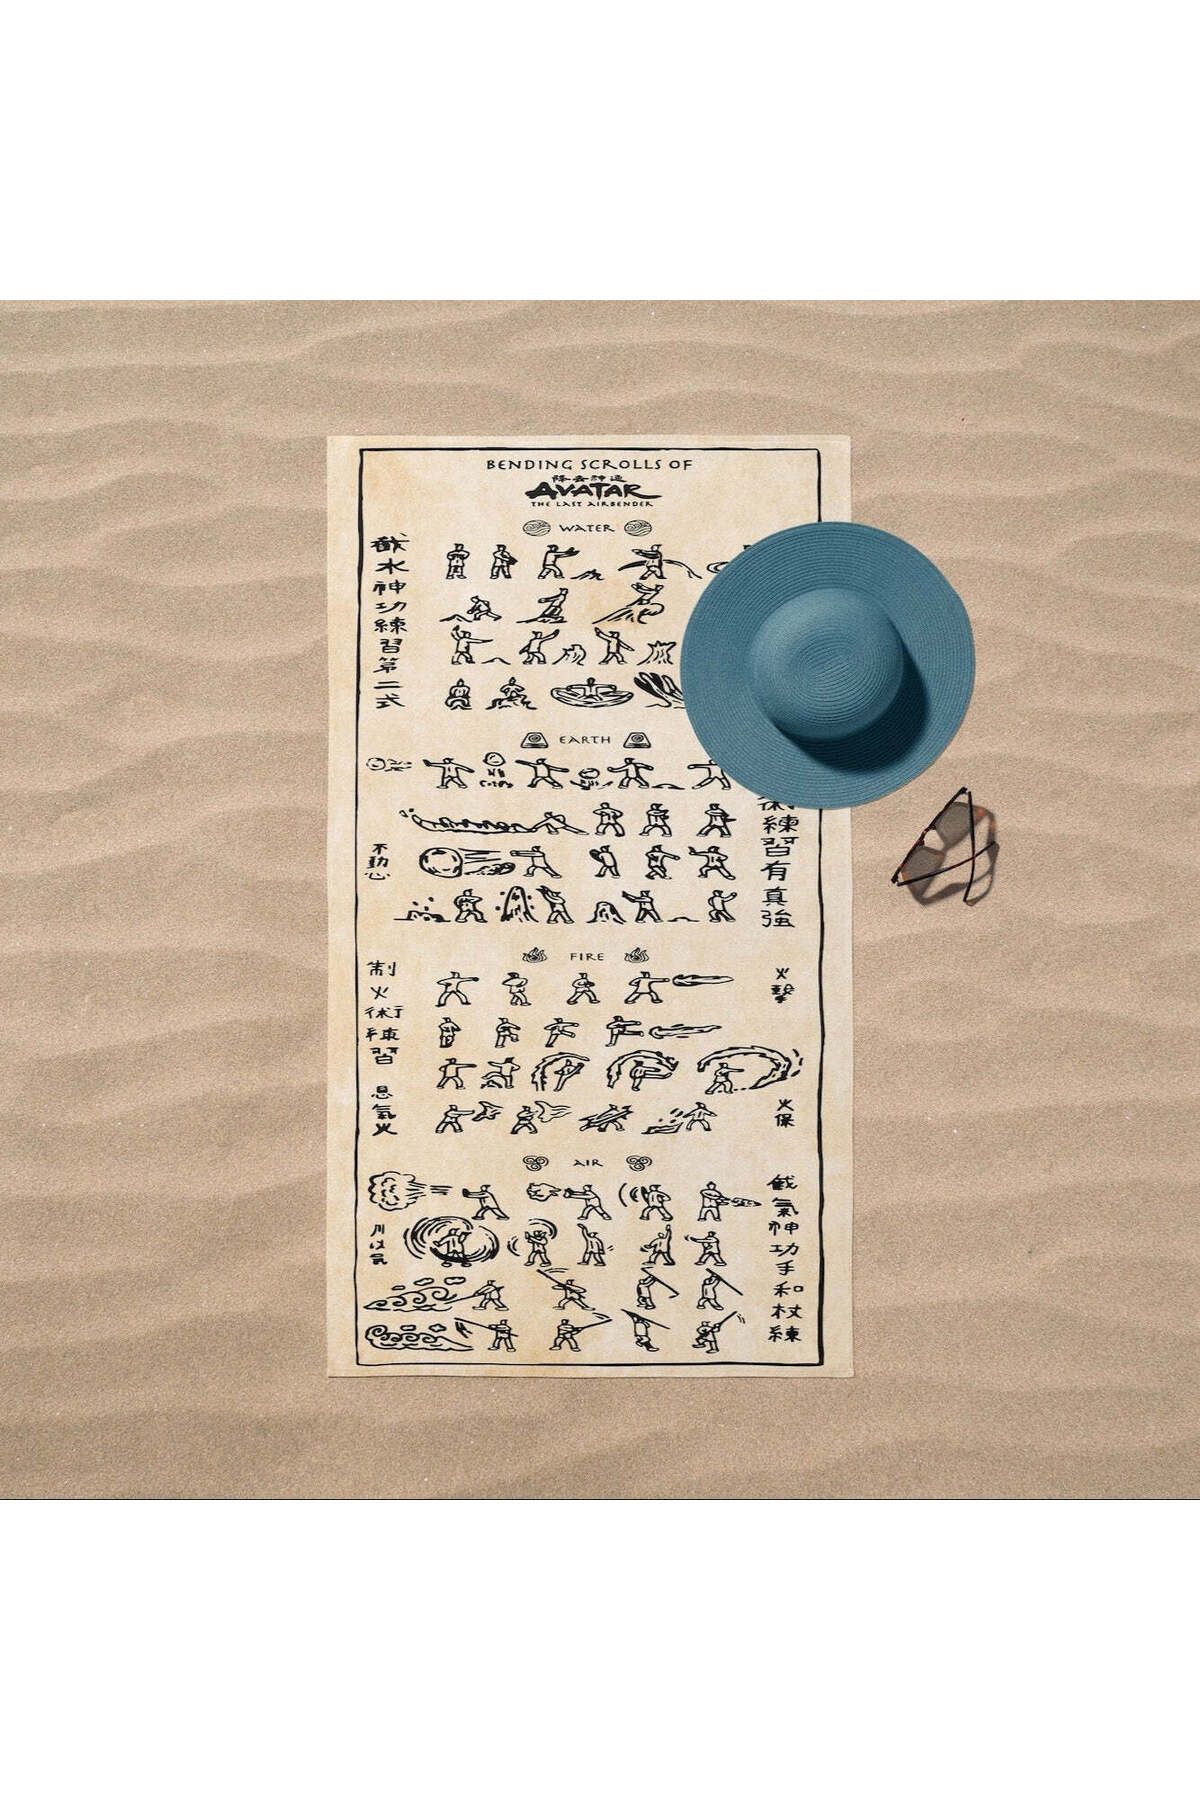 BENDING SCROLLS OF
降去神通
AVATAR
THE LAST AIRBENDER
WATER
截水神功練習第二式
EARTH
術練習有真強
不動心
FIRE
制火術練習
火擊
息氣火
火保
AIR
截氣神功手和杖練
川以气